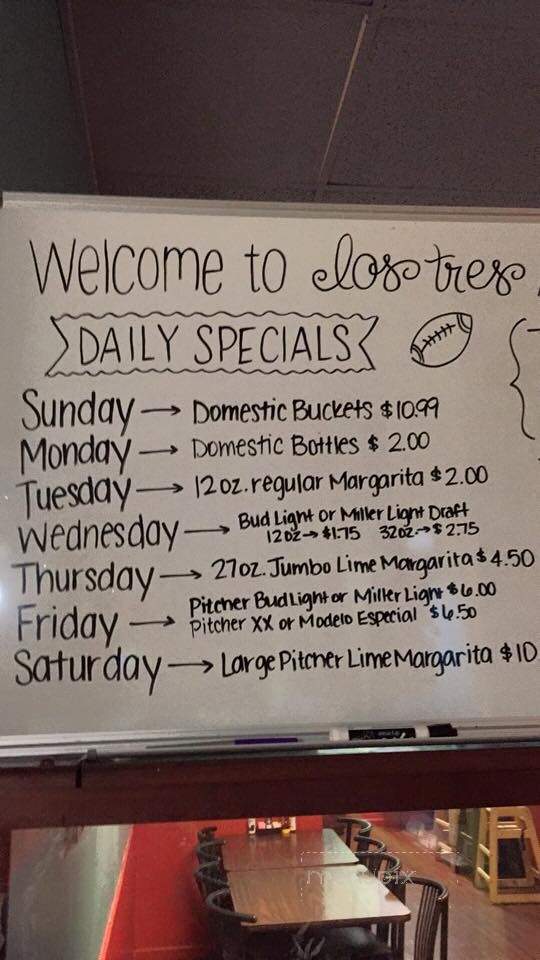 Welcome to Los Tres
DAILY SPECIALS
Sunday → Domestic Buckets $10.99
Monday → Domestic Bottles $ 2.00
Tuesday → 12oz. regular Margarita $2.00
Wednesday → Bud Light or Miller Light Draft
12oz → $1.75 32oz → $2.75
Thursday → 27oz. Jumbo Lime Margarita $4.50
Friday → Pitcher Bud Light or Miller Light $6.00
Pitcher XX or Modelo Especial $6.50
Saturday → Large Pitcher Lime Margarita $10